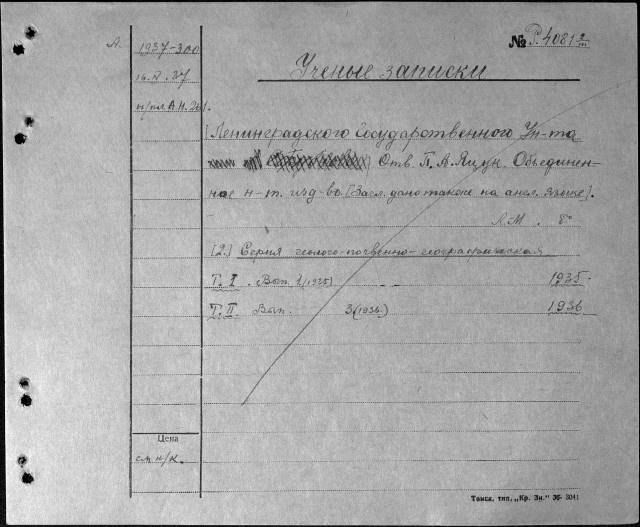 № Р. 4081 2/т
А. 1937-300
Ученые записки
16. V. 37
н/пл. А.Н. 26/.
[Ленинградского Государственного Ун-та
Отв. П. А. Объединен-
ное н-т. изд-во. [Загл. дано также на англ. языке].
Л.-М. 8°
[2.] Серия геолого-почвенно-географическая
Т. I. Вып. 1 (1935) 1935
Т. II. Вып. 3 (1936.) 1936
Цена
см н/к.
Томск, тип. „Кр. Зн." 36- 3041